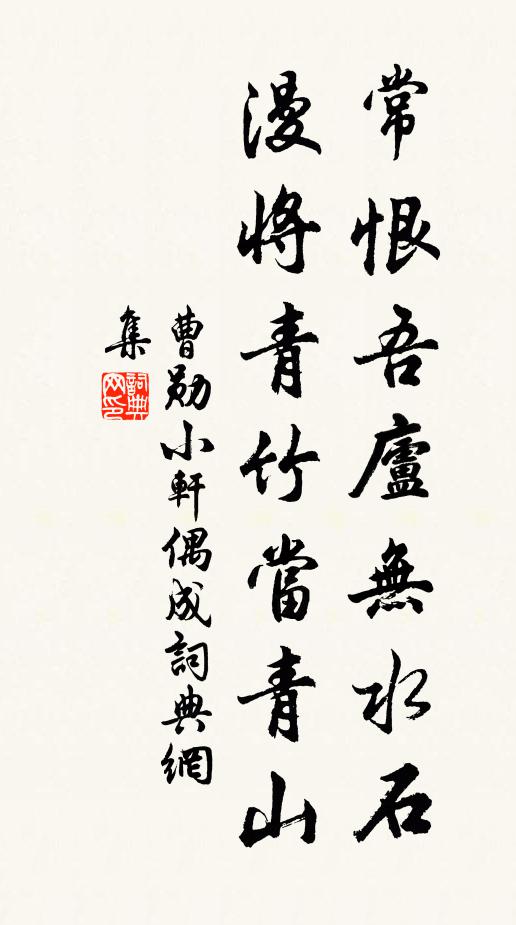 常恨吾廬無水石
漫將青竹當青山
曹勛小軒偶成詞典網
集
詞典
网印